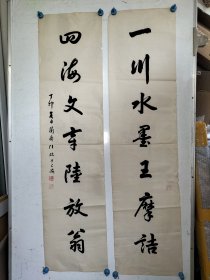 一川水墨王摩詰
四海文章陸放翁
丁卯